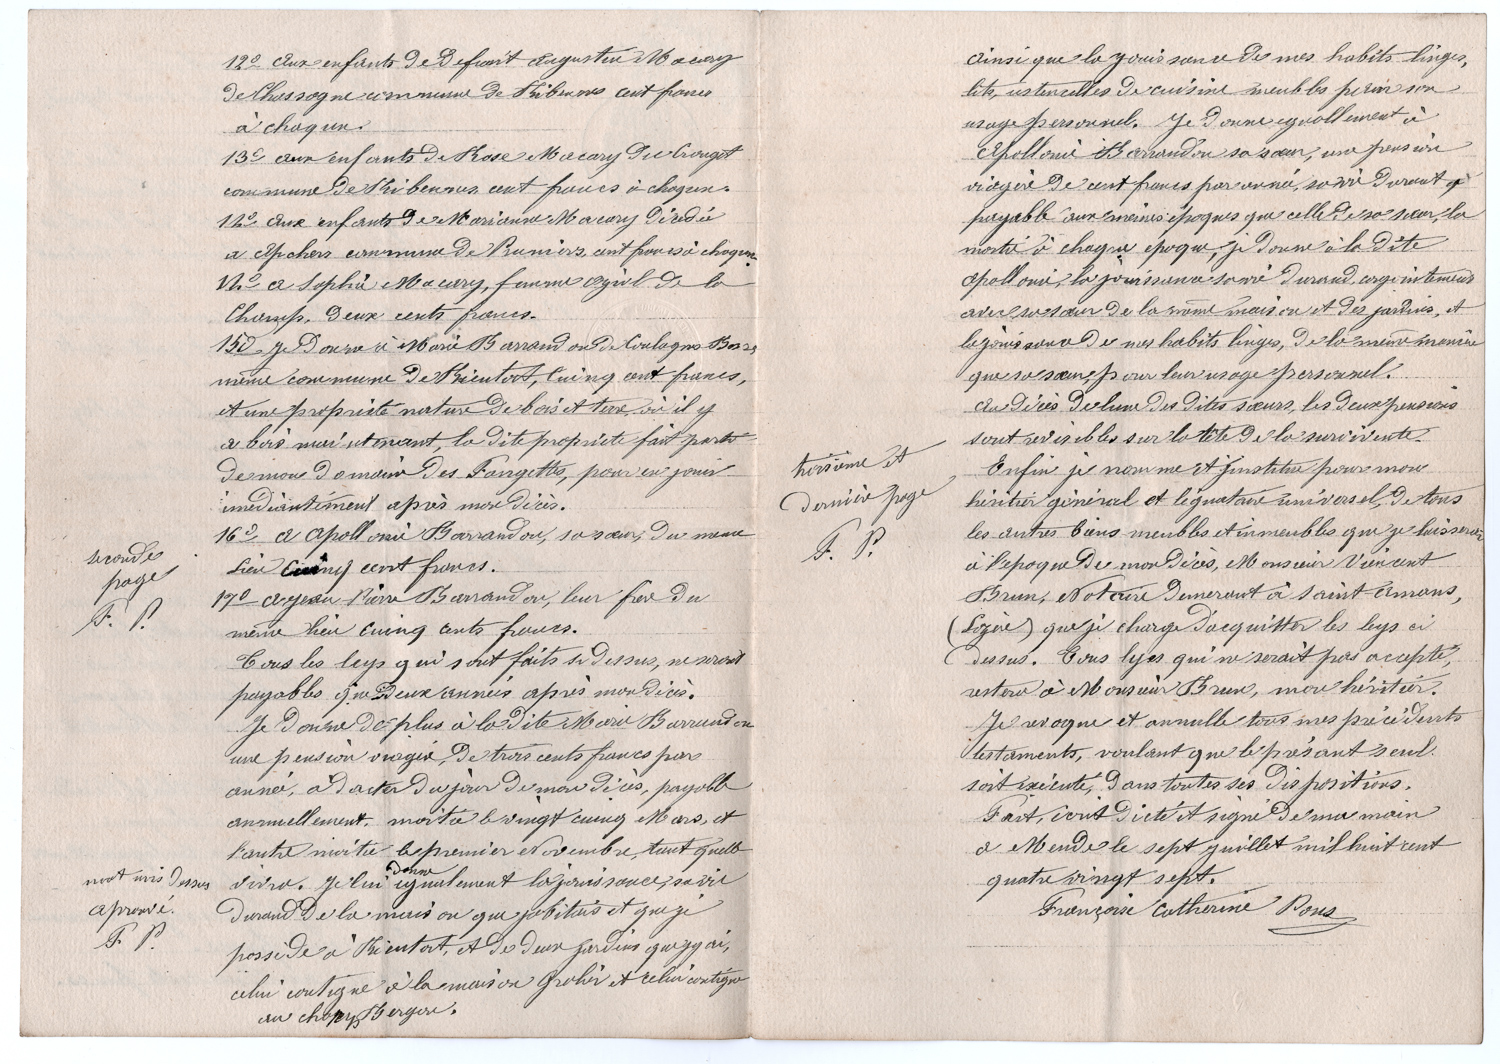 12º aux enfants de defunt Augustin Macary
de Chassagne commune de Ribennes cent francs
à chaqun.
13º aux enfants de Rose Macary du Crouzet
commune de Ribennes, cent francs à chaqun.
14º aux enfants de Marianne Macary décédée
a Apchers commune de Prunières, cent francs à chaqun
14º a Sophie Macary, femme Ayral de la
Champ, deux cents francs.
15º Je donne à Marie Barrandon de Coulagnes Basses
même commune de Rieutort, Cuinq cent francs,
et une propriété nature de bois et terre, où il y
a bois maintenant, la dite propriété fait partie
de mon domaine des Fangettes, pour en jouir
imédiantément après mon décès.
16º a Apollonie Barrandon, sa sœur, du meme
lieu Cuinq cent francs.
seconde
page
F. P.
17º a Jean Pierre Barrandon, leur frere du
même lieu cuinq cents francs.
Tous les leys qui sont faits si dessus, ne seront
payables que deux années après mon décès.
Je donne de plus à la dite Marie Barrandon
une pension viagère, de trois cents francs par
année, à dater du jour de mon décès, payable
annuellement. moitié le vingt cuinq Mars, et
l'autre moitié le premier Novembre, tant quelle
vivra. Je lui donne égualement la jouissance, sa vie
mot mis dessus
aprouvé.
F P.
durand de la maison que j'abitais et que je
possède à Rieutort, et de deux jardins que j'y ai,
celui contigne à la maison Grolier et celui contigne
au champ Bergon.
ainsi que la jouissance de mes habits linges,
lits, ustencilles de cuisine meubles pour son
usage personnel. Je donne eguallement à
Apollonie Barrandon sa sœur, une pension
viagère de cent francs par année, sa vie durant
payable aux mêmes époques que celle de sa sœur, la
moitié à chaque époque, je donne à la dite
Apollonie, la jouissance sa vie durand, conjointement
avec sa sœur de la même maison et des jardins, et
la jouissance de mes habits linges, de la même manière
que sa sœur, pour leur usage personnel.
Au décès de lune des dites sœurs, les deux pensions
sont revisibles sur la tête de la survivente.
troisième et
dernière page
F. P.
Enfin je nomme et j'institue pour mon
héritier général et léguataire universel, de tous
les autres biens meubles et immeubles que je laisserai
à l'époque de mon décès, Monsieur Vincent
Brun, Notaire demeurant à Saint Amans,
(Lozère) que je charge d'acquitter les leys ci
dessus. Tous leyes qui ne serait pas accepté,
restera à Monsieur Brun, mon héritier.
Je revoque et annulle tous mes précédents
testaments, voulant que le présant seul
soit exécuté, dans toutes ses dispositions.
Fait, écrit dicté et signé de ma main
a Mende le sept juillet mil huit cent
quatre vingt sept.
Françoise Catherine Pons